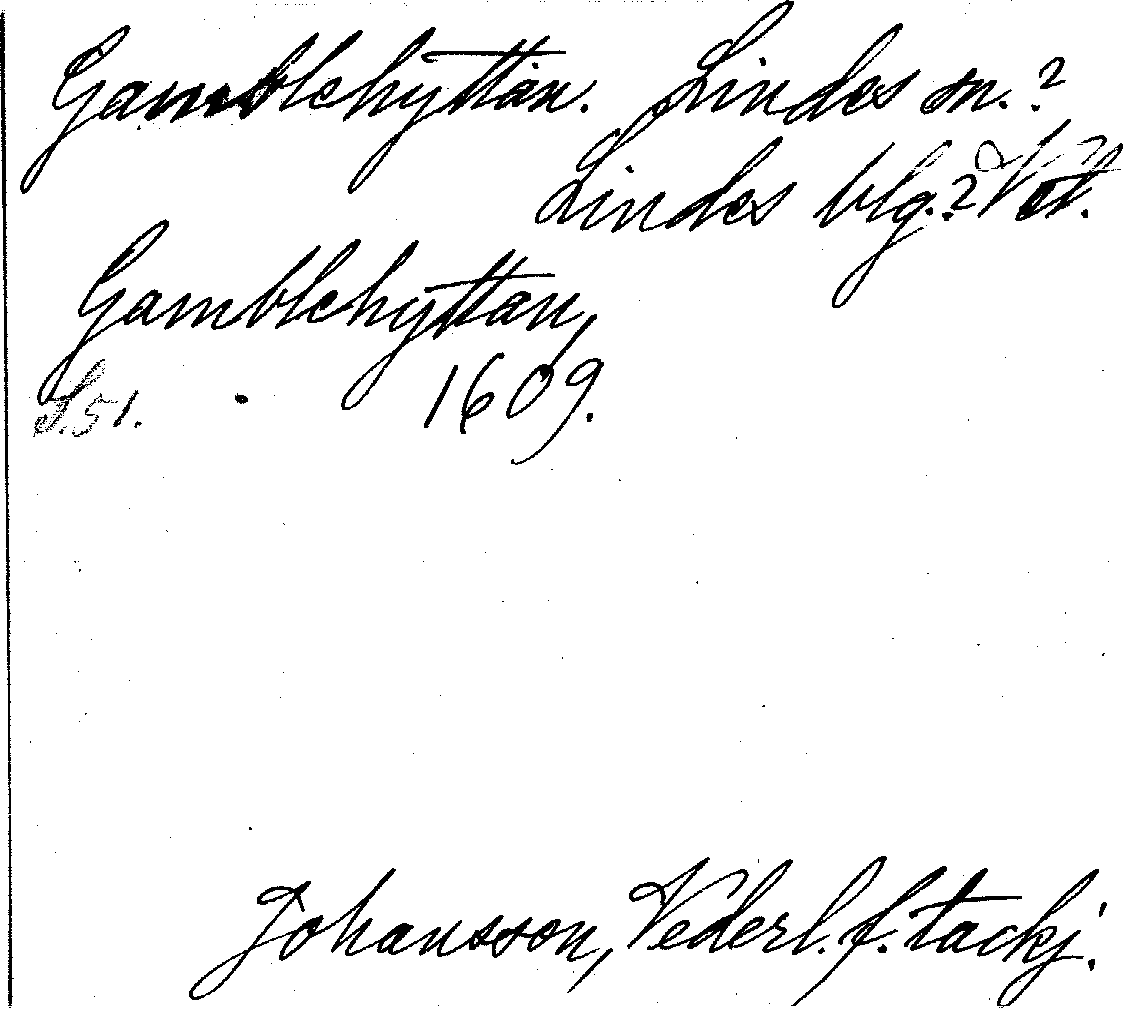 Gamblehyttan. Lindes sn.?
Lindes blg.? Vstm.
Gamblehyttan,
S.51. 1609.
Johansson, Vederl. f. tackj.